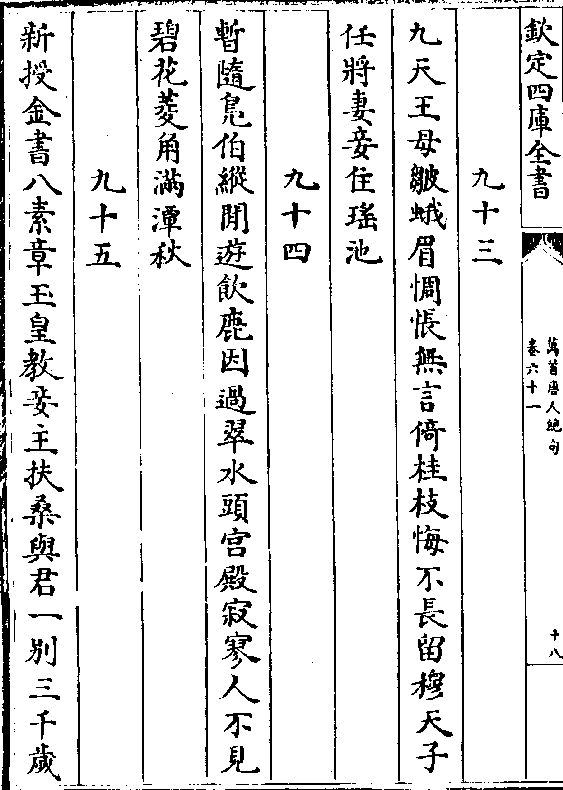 欽定四庫全書
萬首唐人絶句
卷六十一
十八
九十三
九天王母皺蛾眉惆悵無言倚桂枝悔不長留穆天子
任將妻妾住瑤池
九十四
暫隨鳬伯縱閒遊飲鹿因過翠水頭宫殿寂寥人不見
碧花菱角滿潭秋
九十五
新授金書八素章玉皇教妾主扶桑與君一別三千歲